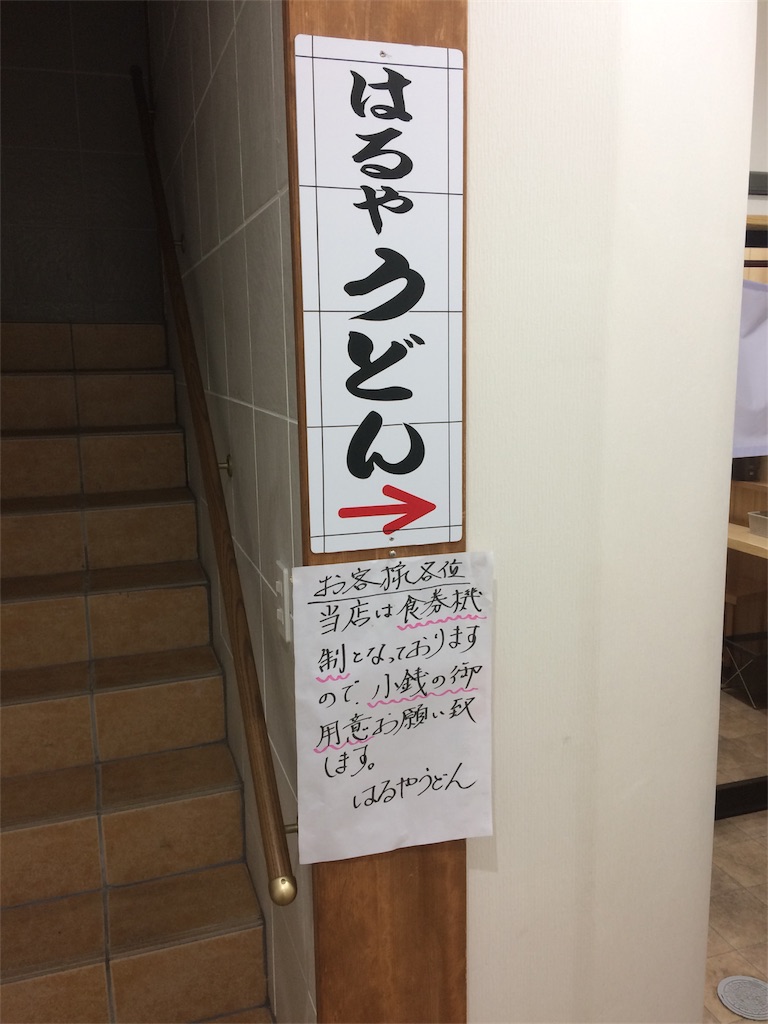 はるやうどん
お客様各位
当店は食券機
制となっております
ので、小銭の御
用意お願い致
します。
はるやうどん